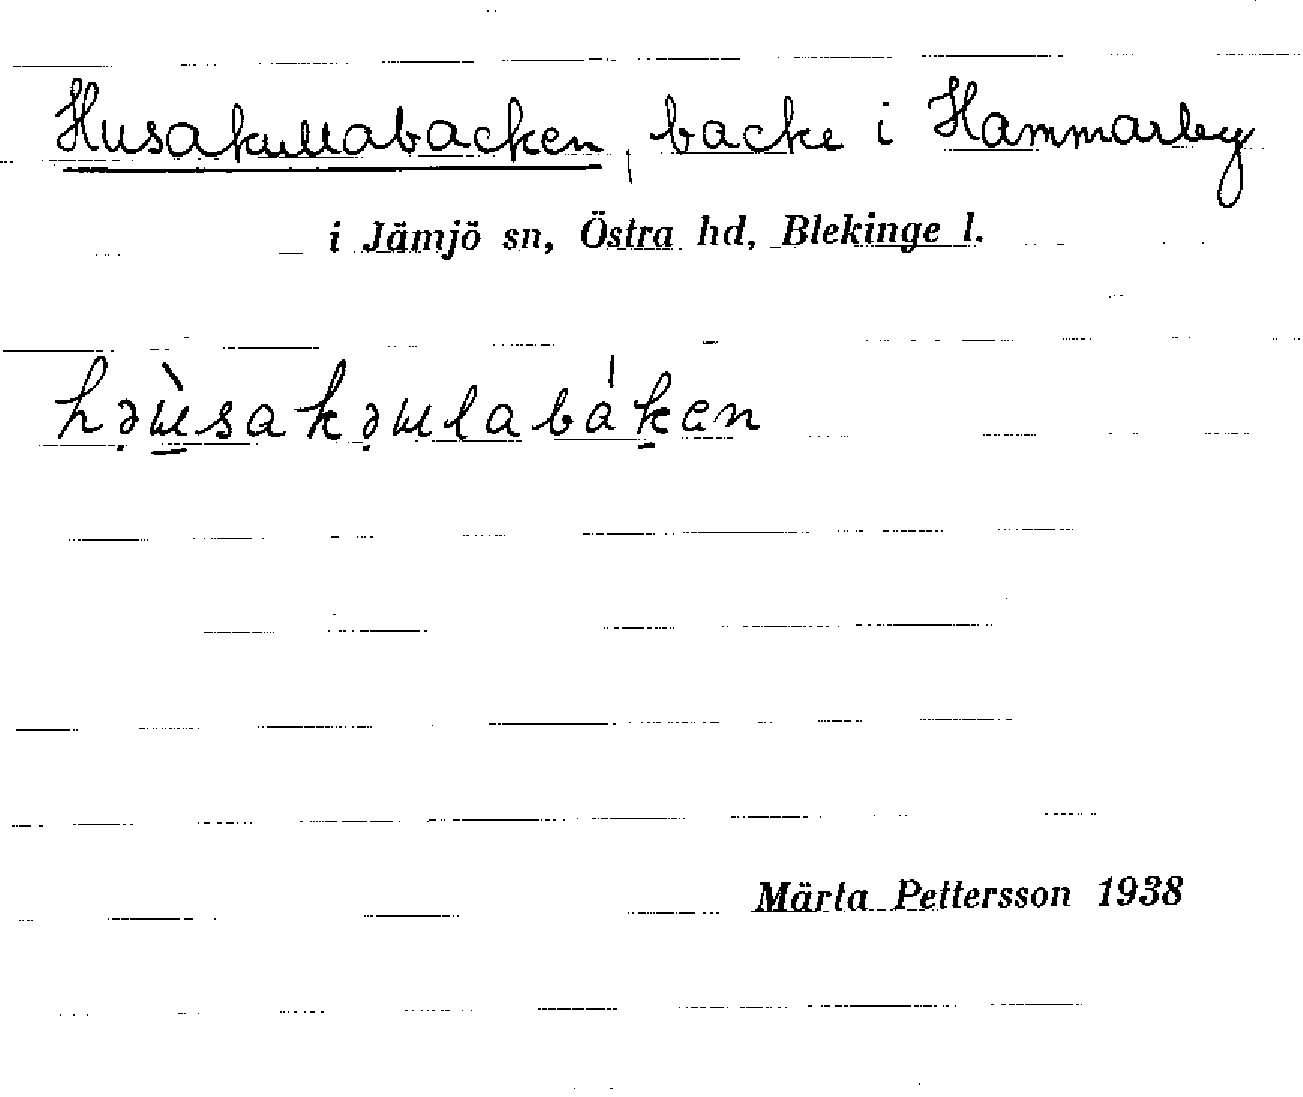 Husakullabacken, backe i Hammarby
i Jämjö sn, Östra hd, Blekinge l.
hə̣ɯ̀sakə̣ɯlabáken
Märta Pettersson 1938